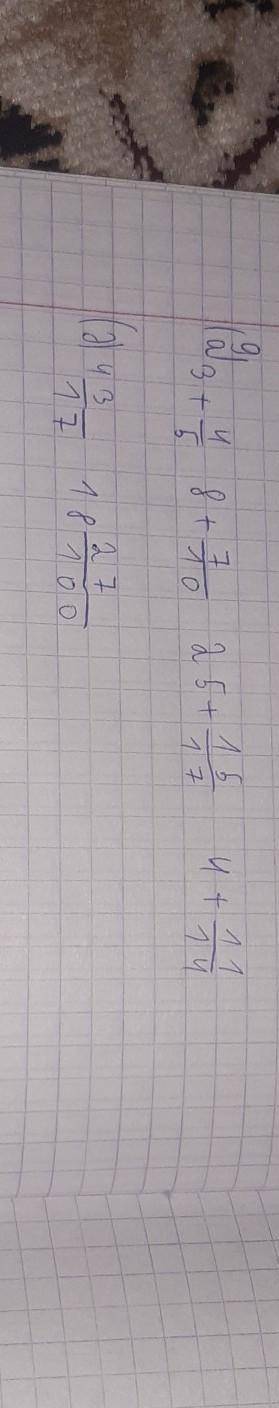 9
a) 3 + 4/5 8 + 7/10 25 + 15/17 4 + 11/14
a) 4 3/17 18 27/100